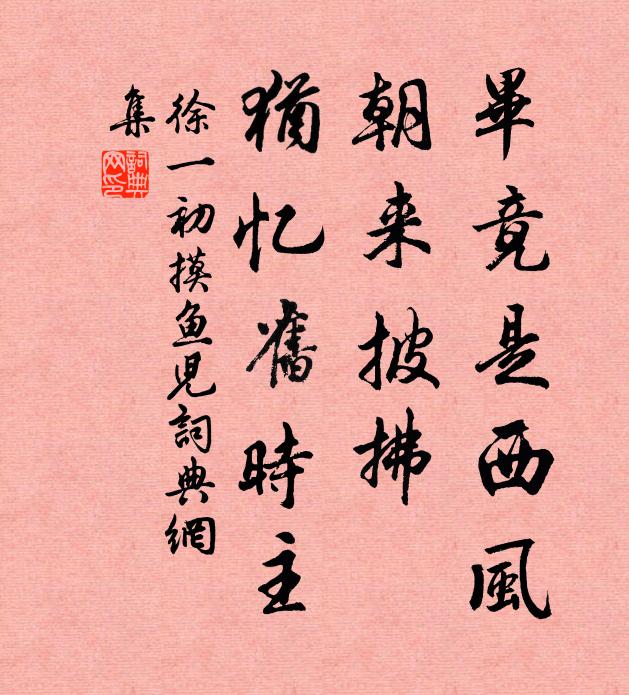 畢竟是西風
朝来披拂
猶忆舊時主
徐一初摸鱼児詞典網
集
詞典網印